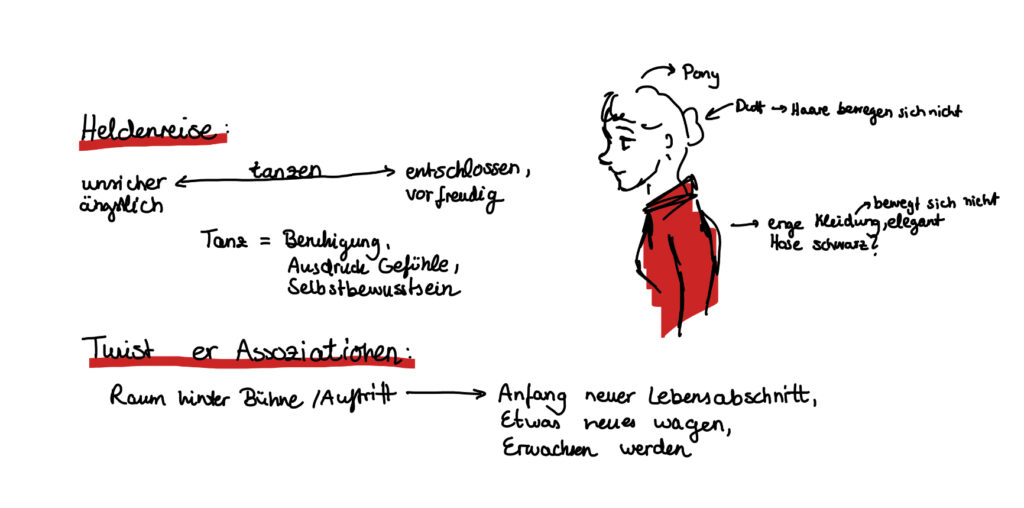 Heldenreise:
unsicher
ängstlich
tanzen
entschlossen,
vorfreudig
Tanz = Beruhigung,
Ausdruck Gefühle,
Selbstbewusstsein
Pony
Dutt → Haare bewegen sich nicht
bewegt sich nicht
→ enge Kleidung, elegant
Hose schwarz?
Twist er Assoziationen:
Raum hinter Bühne / Auftritt → Anfang neuer Lebensabschnitt,
Etwas neues wagen,
Erwachsen werden